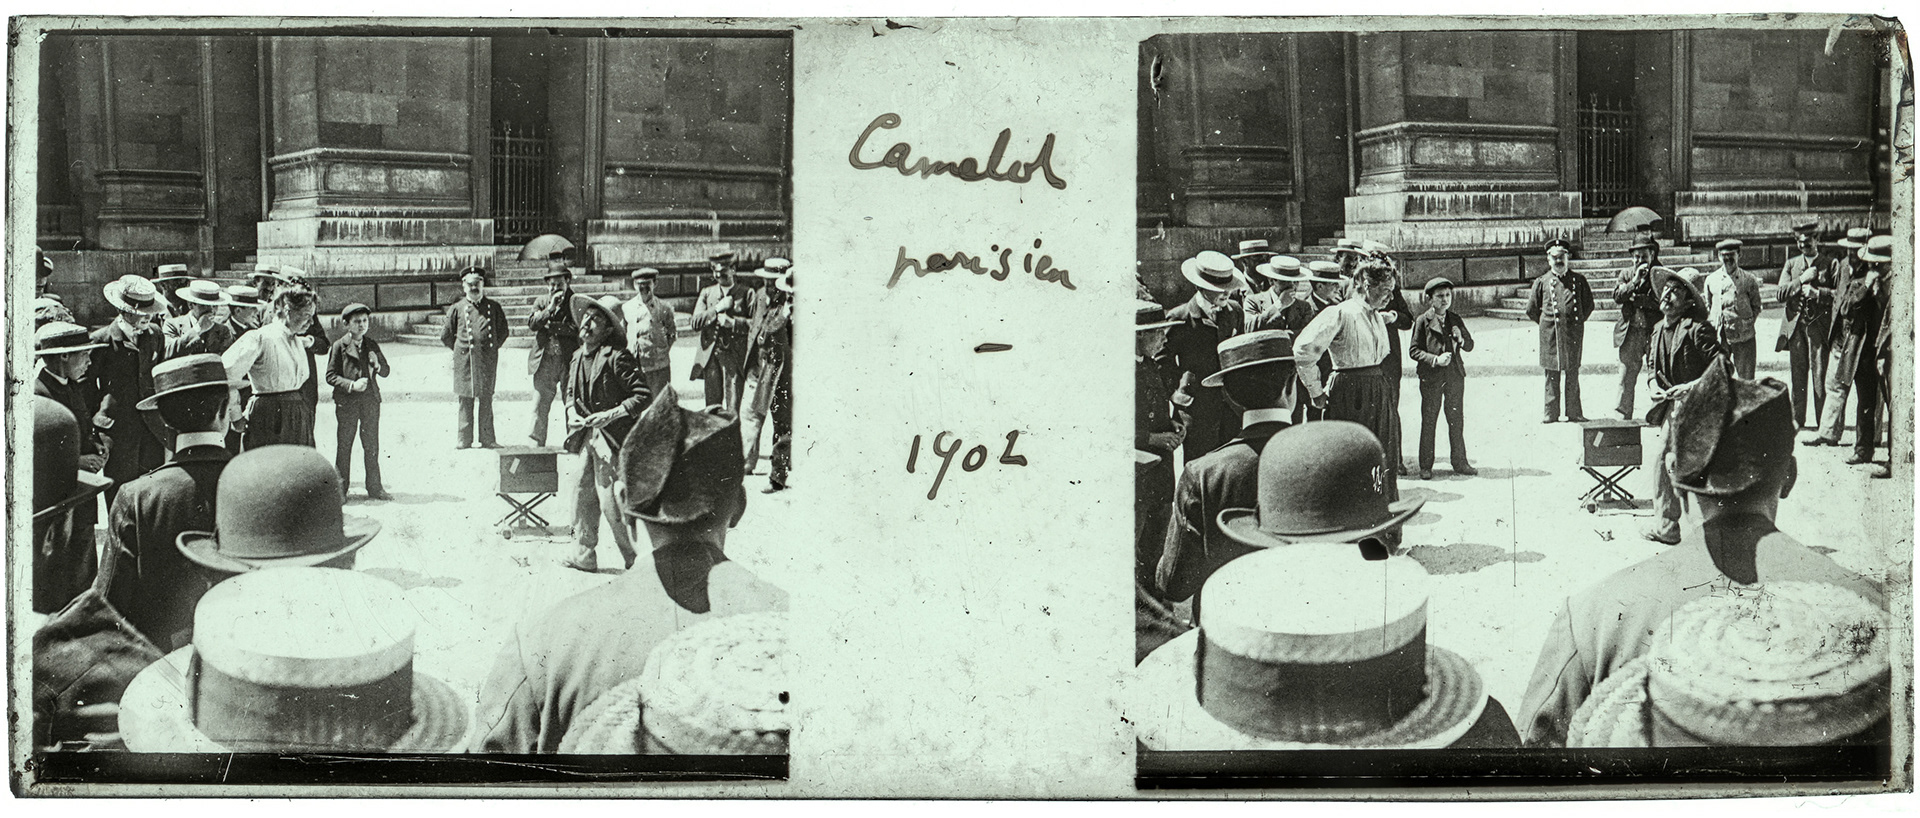 Camelot
parisien
-
1902